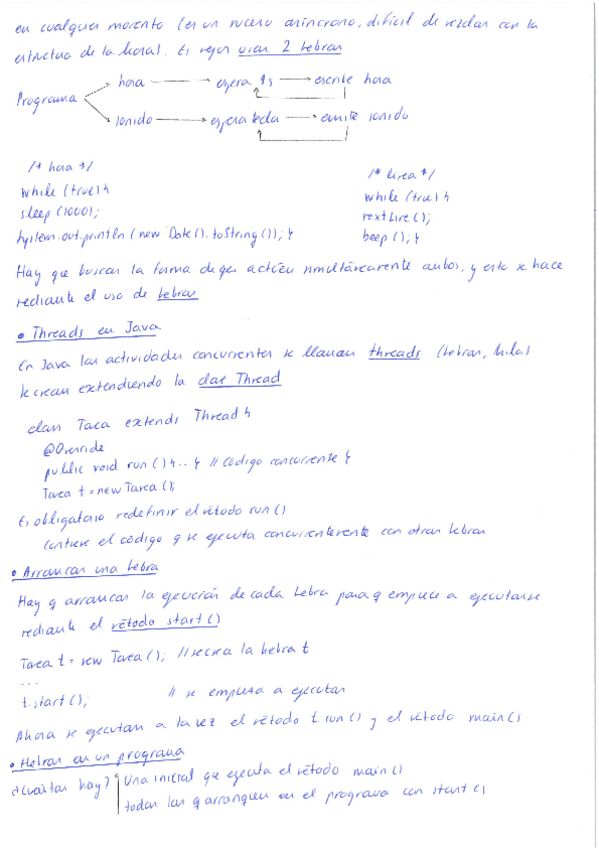 en cualquier momento (es un suceso asíncrono, difícil de mezclar con la
estructura de la hora). Es mejor usar 2 hebras
Programa
hora → espera 1s → escribe hora
sonido → espera tecla → emite sonido
/* hora */
while (true) {
sleep (1000);
System.out.println (new Date().toString()); }
/* línea */
while (true) {
nextLine();
beep(); }
Hay que buscar la forma de q actúen simultáneamente ambos, y esto se hace
mediante el uso de hebras
• Threads en Java
En Java las actividades concurrentes se llaman threads (hebras, hilos)
Se crean extendiendo la clase Thread
class Tarea extends Thread {
@Override
public void run () {...} // Código concurrente }
Tarea t = new Tarea ();
Es obligatorio redefinir el método run ()
Contiene el código q se ejecuta concurrentemente con otras hebras
• Arrancar una hebra
Hay q arrancar la ejecución de cada hebra para q empiece a ejecutarse
mediante el método start ()
Tarea t = new Tarea (); // se crea la hebra t
...
t.start (); // se empieza a ejecutar
Ahora se ejecutan a la vez el método t.run () y el método main ()
• Hebras en un programa
¿Cuántas hay? Una inicial que ejecuta el método main ()
todas las q arranquen en el programa con start ()